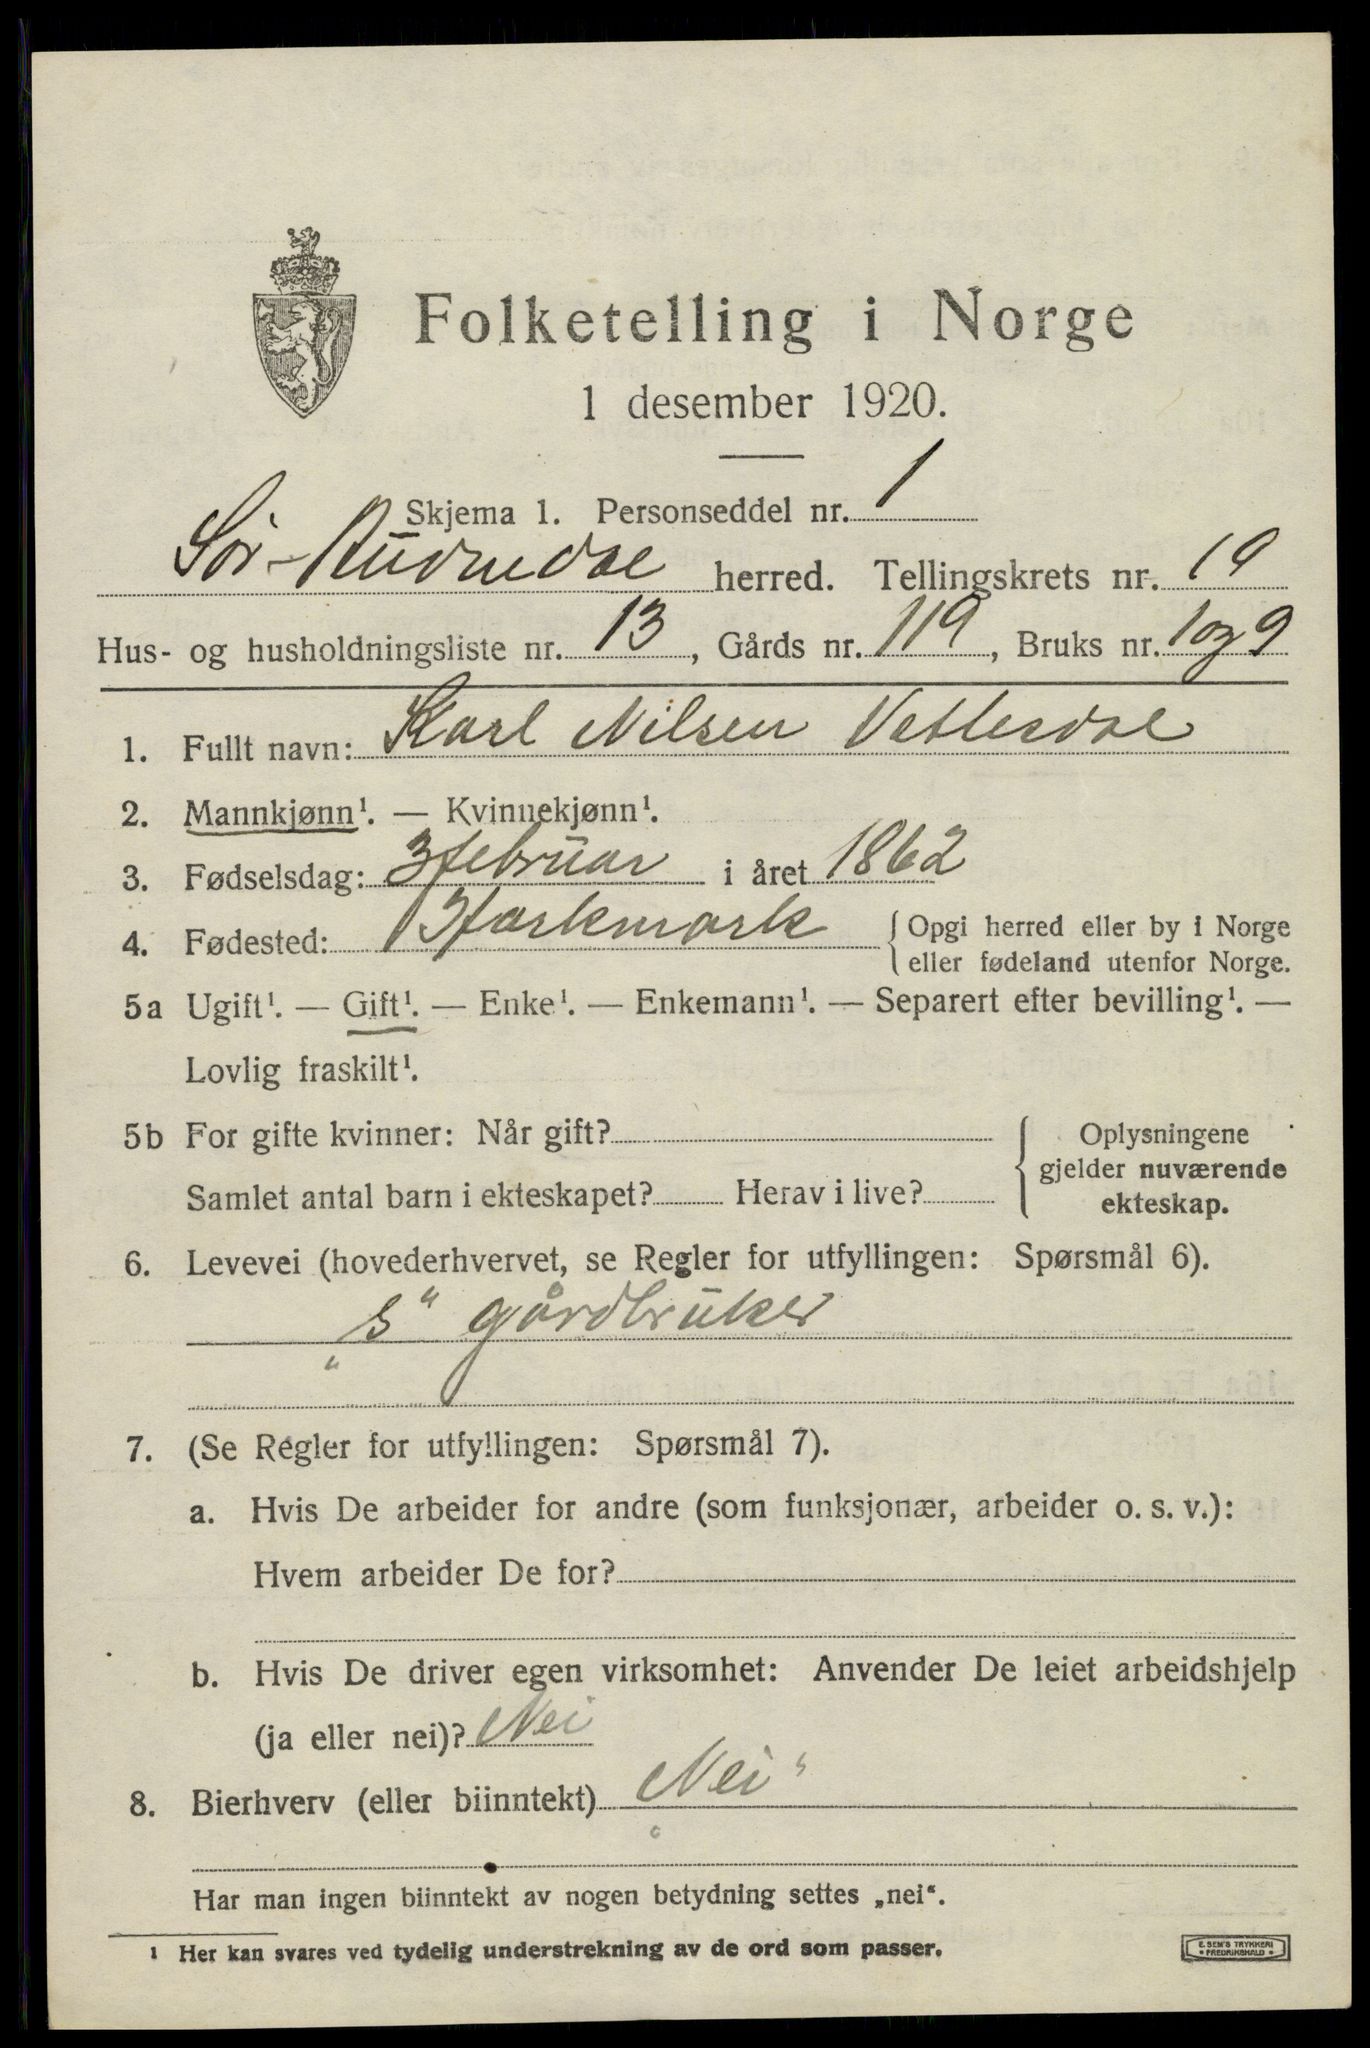 Folketelling i Norge
1 desember 1920.
Skjema 1. Personseddel nr. 1
Sør-Audnedal herred. Tellingskrets nr. 19
Hus- og husholdningsliste nr. 13, Gårds nr. 119, Bruks nr. 1 og 9
1. Fullt navn: Karl Nilsen Vetlesdal
2. Mannkjønn¹. — Kvinnekjønn¹.
3. Fødselsdag: 3 februar i året 1862
4. Fødested: Harkmark { Opgi herred eller by i Norge
eller fødeland utenfor Norge.
5a Ugift¹. — Gift¹. — Enke¹. — Enkemann¹. — Separert efter bevilling¹. —
Lovlig fraskilt¹.
5b For gifte kvinner: Når gift? { Oplysningene
gjelder nuværende
Samlet antal barn i ekteskapet? Herav i live?
ekteskap.
6. Levevei (hovederhvervet, se Regler for utfyllingen: Spørsmål 6).
„s" gårdbruker
7. (Se Regler for utfyllingen: Spørsmål 7).
a. Hvis De arbeider for andre (som funksjonær, arbeider o. s. v.):
Hvem arbeider De for?
b. Hvis De driver egen virksomhet: Anvender De leiet arbeidshjelp
(ja eller nei)? Nei
8. Bierhverv (eller biinntekt) „Nei"
Har man ingen biinntekt av nogen betydning settes „nei“.
¹ Her kan svares ved tydelig understrekning av de ord som passer.
E. SEM'S TRYKKERI
• FREDRIKSHALD •